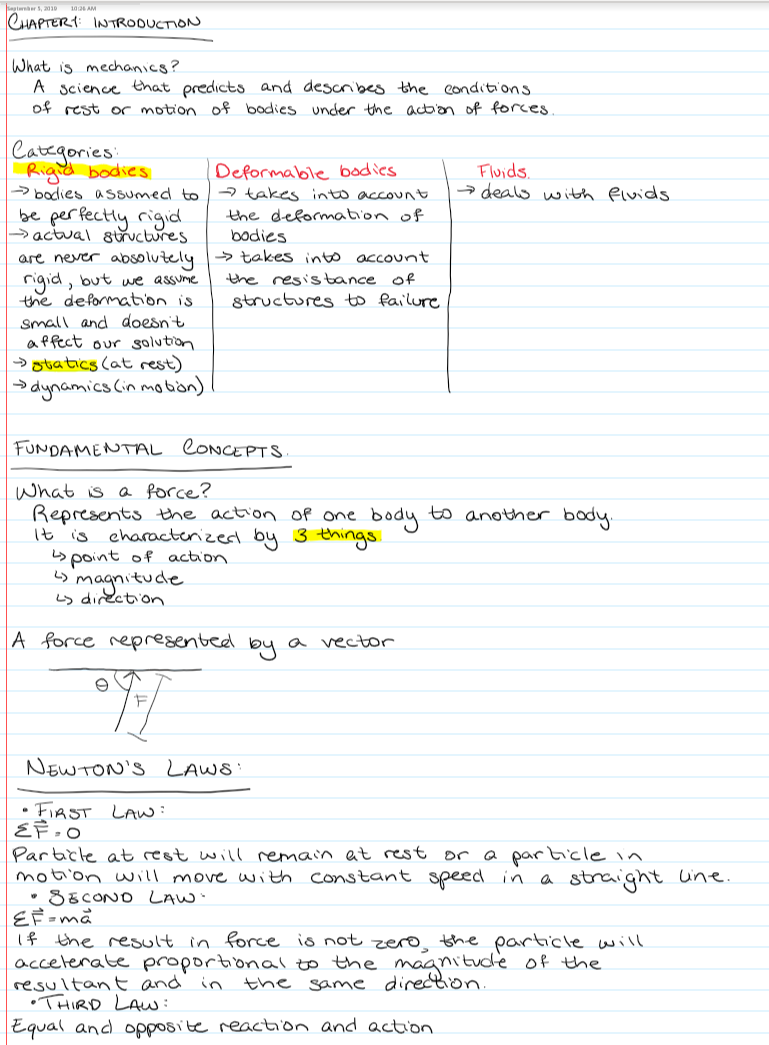 September 5, 2019 10:26 AM
CHAPTER 1: INTRODUCTION
What is mechanics?
A science that predicts and describes the conditions
of rest or motion of bodies under the action of forces.
Categories:
Rigid bodies
→ bodies assumed to
be perfectly rigid
→ actual structures
are never absolutely
rigid, but we assume
the deformation is
small and doesn't
affect our solution
→ statics (at rest)
→ dynamics (in motion)
Deformable bodies
→ takes into account
the deformation of
bodies
→ takes into account
the resistance of
structures to failure
Fluids.
→ deals with fluids
FUNDAMENTAL CONCEPTS.
What is a force?
Represents the action of one body to another body.
It is characterized by 3 things
↳ point of action
↳ magnitude
↳ direction
A force represented by a vector
θ
F
NEWTON'S LAWS:
• FIRST LAW:
ΣF⃗ = 0
Particle at rest will remain at rest or a particle in
motion will move with constant speed in a straight line.
• SECOND LAW:
ΣF⃗ = ma⃗
If the result in force is not zero, the particle will
accelerate proportional to the magnitude of the
resultant and in the same direction.
• THIRD LAW:
Equal and opposite reaction and action